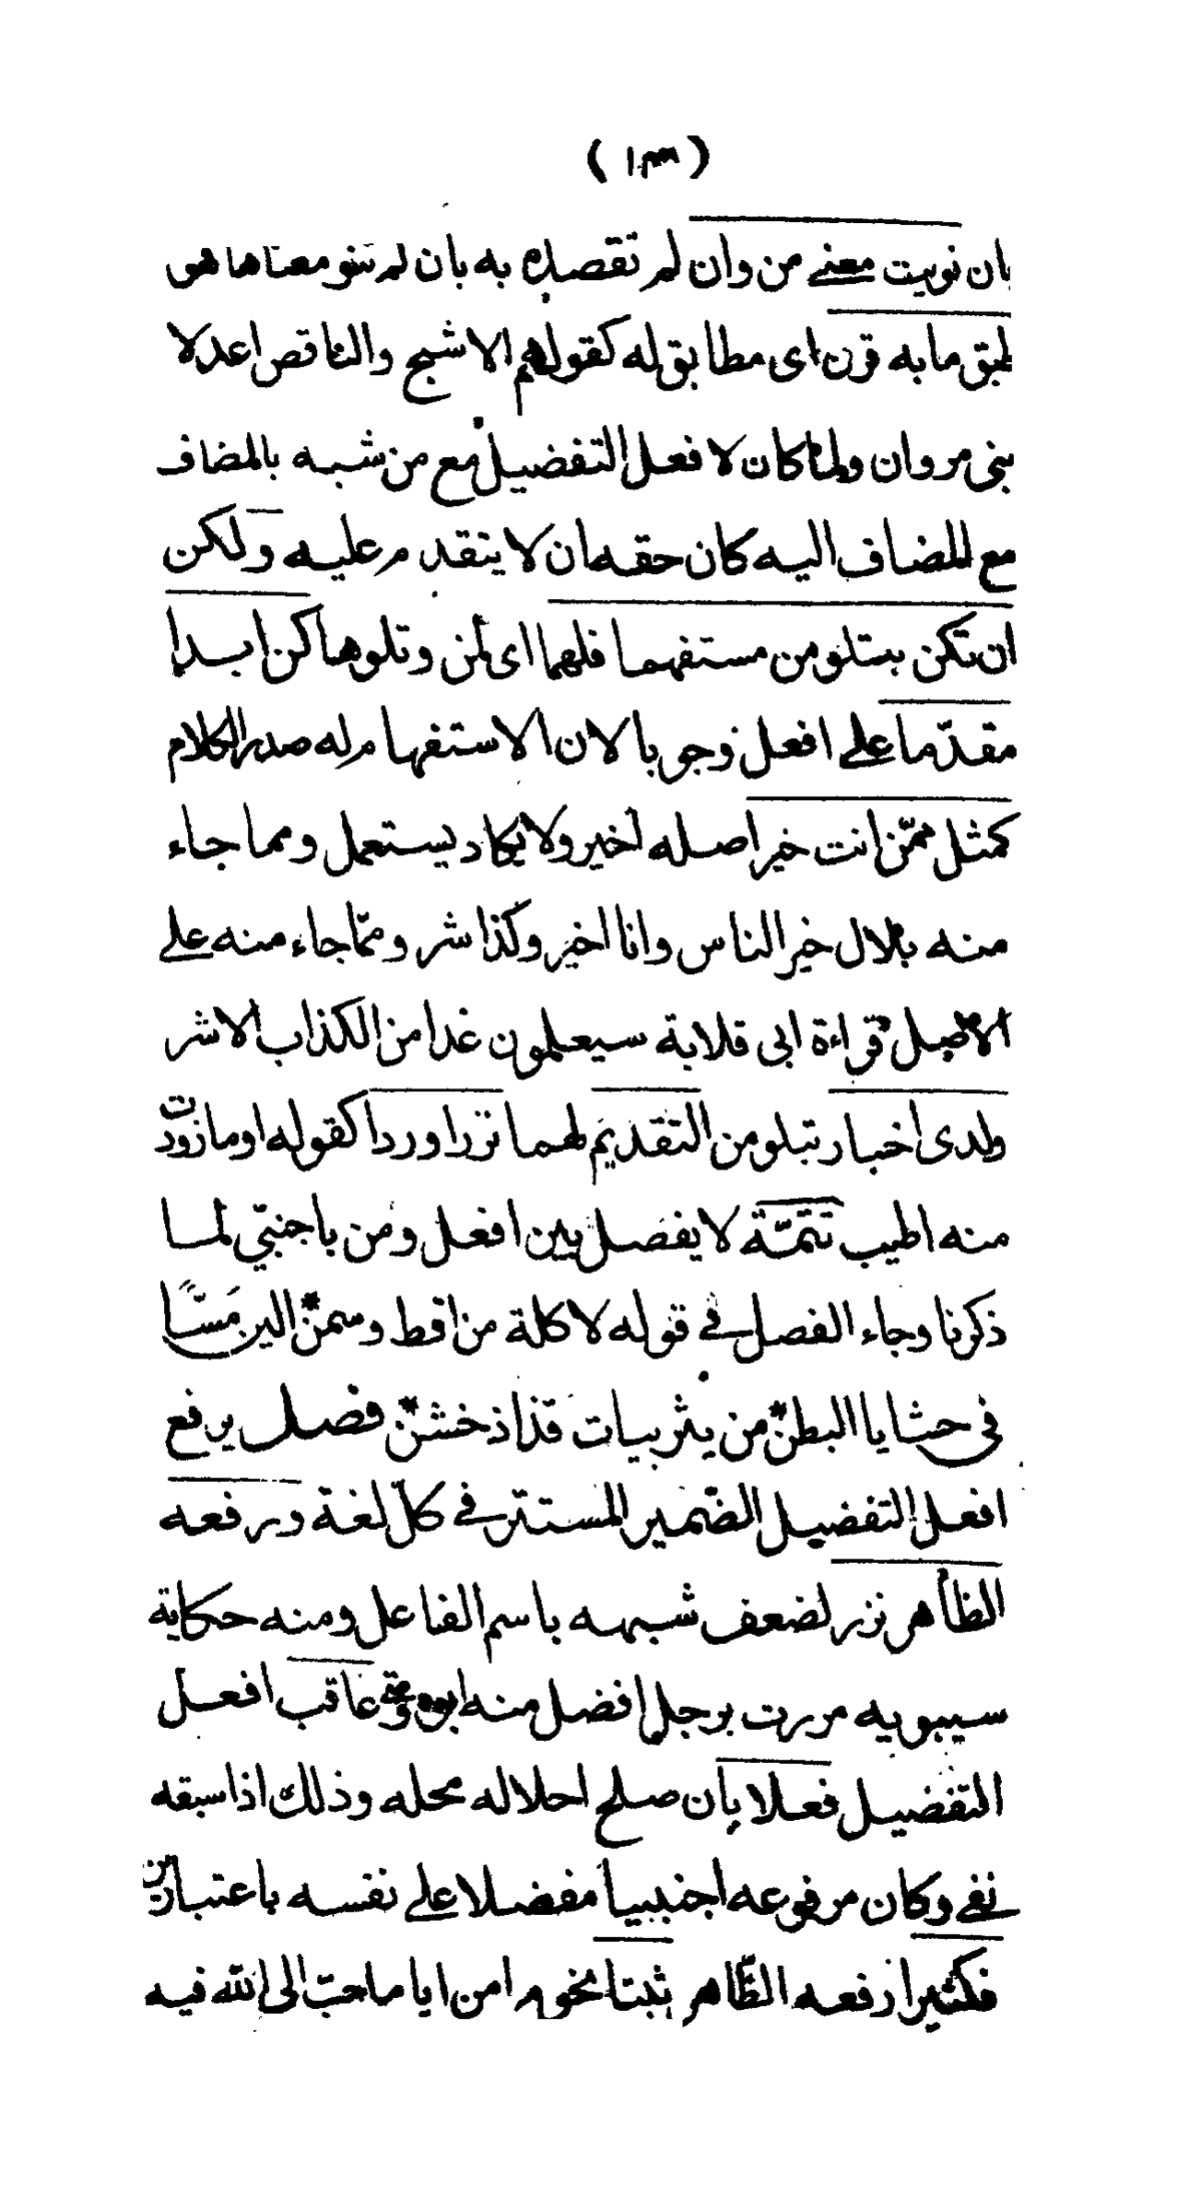 (١٣٠)
بان نويت معنى من وان لم تقصده به بان لم تنو معناها فهو
طبق ما به قرن اى مطابق له كقولهم الاشج والناقص اعدلا
بنى مروان ولما كان لافعل التفضيل مع من شبه بالمضاف
مع المضاف اليه كان حقه ان لا يتقدم عليه ولكن
ان تكن بتلو من مستفهما فلهما اى لمن وتلوها كن ابدا
مقدّما على افعل وجوبا لان الاستفهام له صدر الكلام
كمثل ممّن انت خير اصله اخير ولا يكاد يستعمل ومما جاء
منه بلال خير الناس وانا اخير وكذا شر وممّا جاء منه على
الاصل قراءة ابى قلابة سيعلمون غدا من الكذاب الاشر
ولدى اخبار بتلو من التقديم لهما نزرا وردا كقوله او ما زودت
منه اطيب تتمّة لا يفصل بين افعل ومن باجنبىّ لما
ذكرنا وجاء الفصل فى قوله لاكلة من اقط وسمن* الين مَسّاً
فى حشايا البطن* من يثربيات قذاذ خشن* فصل يرفع
افعل التفضيل الضّمير المستتر فى كلّ لغة ورفعه
الظاهر نزر لضعف شبهه باسم الفاعل ومنه حكاية
سيبويه مررت برجل افضل منه ابوه ومتى عاقب افعل
التفضيل فعلا بان صلح احلاله محله وذلك اذا سبقه
نفى وكان مرفوعه اجنبيا مفضلا على نفسه باعتبارين
فكثيرا رفعه الظّاهر ثبتا نحو ما من ايام احبّ الى الله فيه